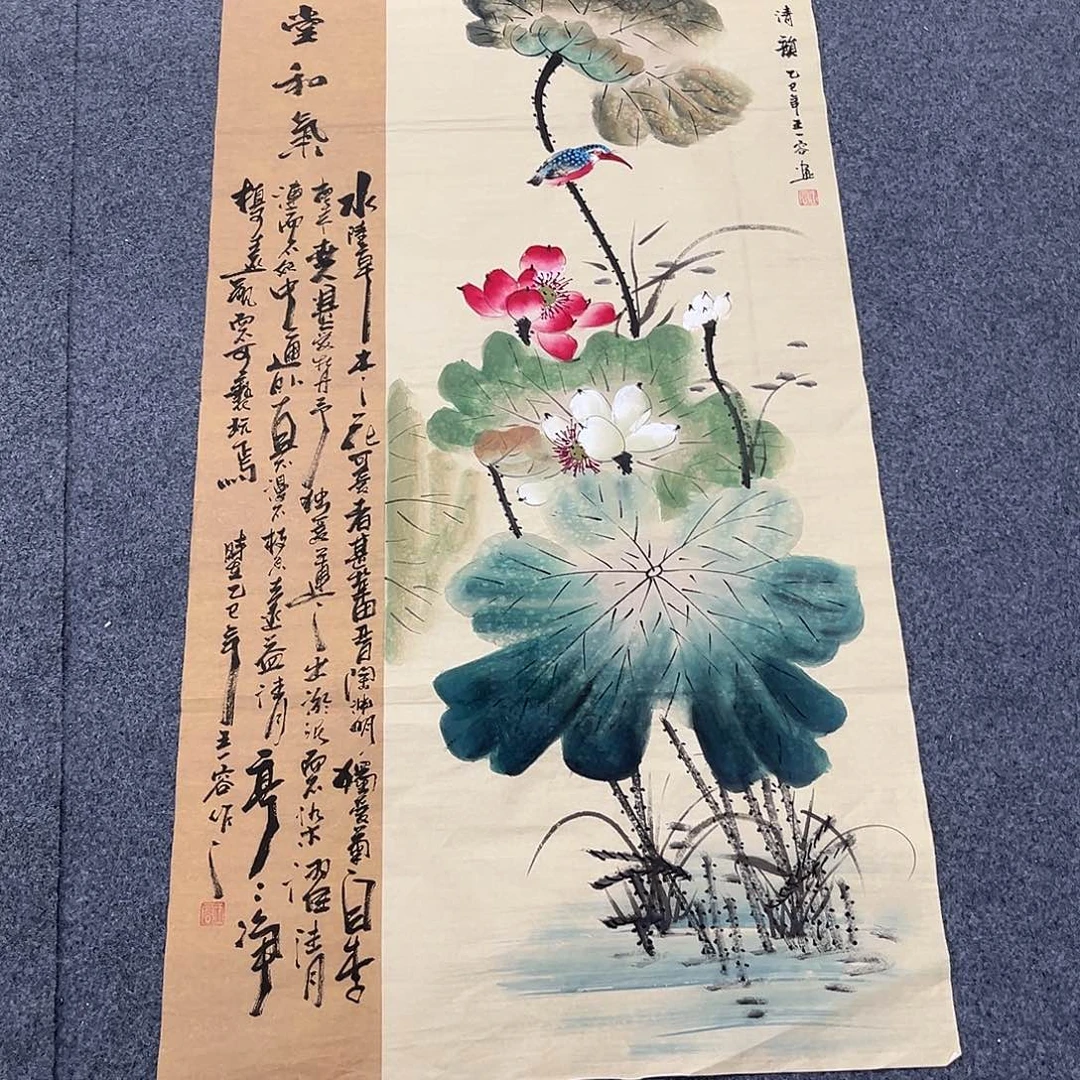 清韻 乙巳年王一容畫
堂和氣
水陸草木之花可愛者甚蕃晉陶淵明獨愛菊自李
唐来世人甚愛牡丹予独愛蓮之出淤泥而不染濯清
漣而不妖中通外直不漫不枝香遠益清亭々净
植可遠觀而不可褻玩焉 時乙巳年王一容作之